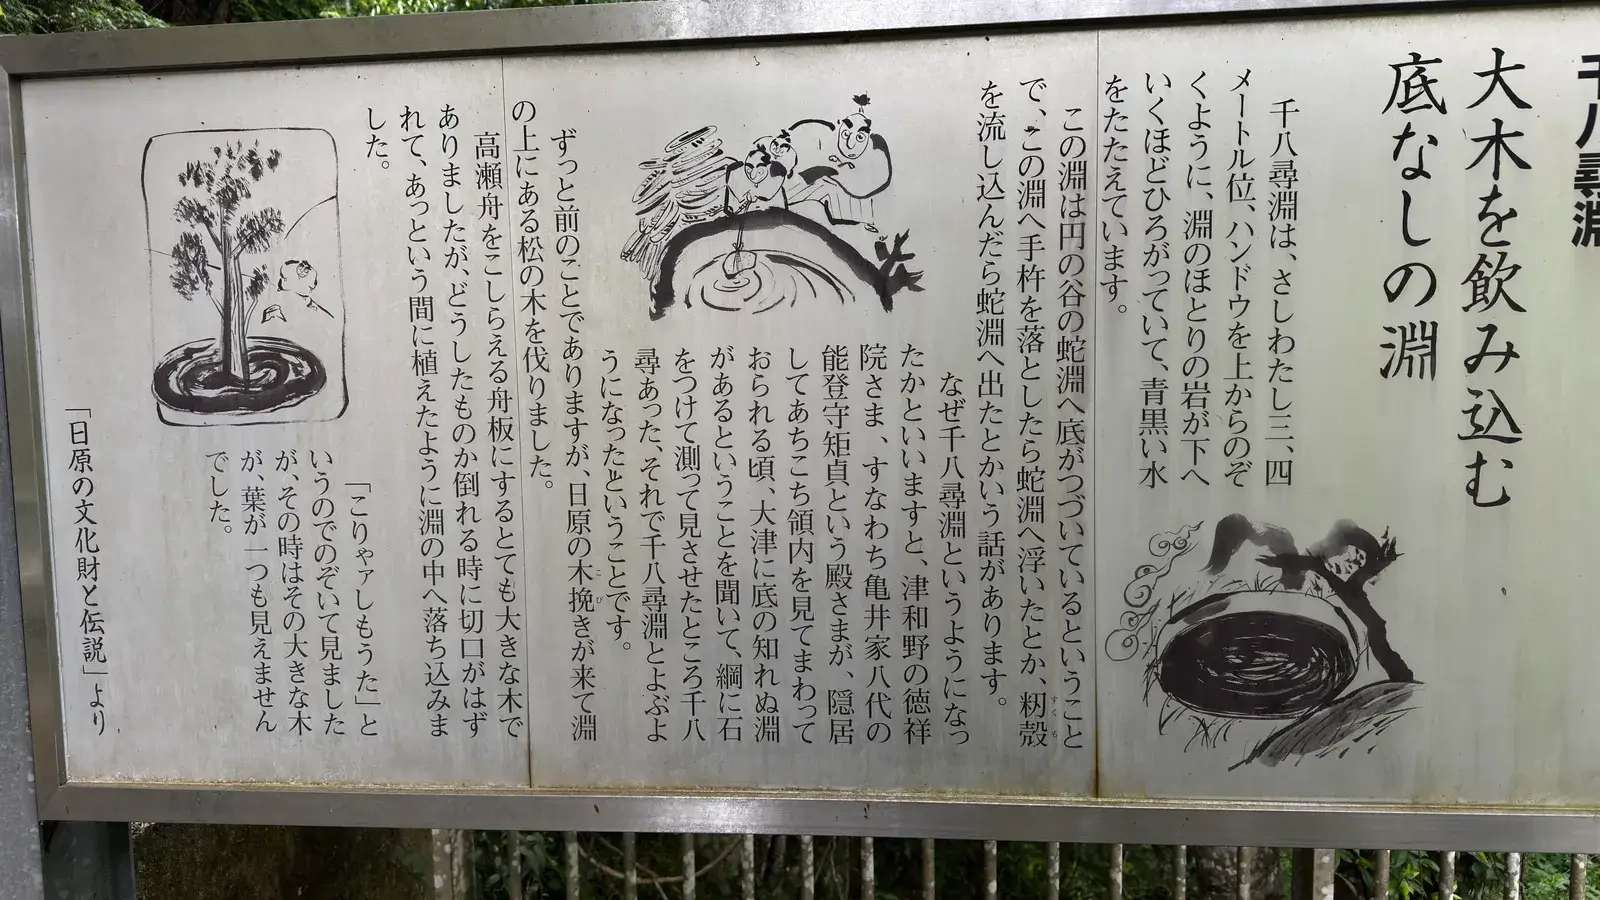 千八尋淵
大木を飲み込む
底なしの淵
千八尋淵は、さしわたし三、四
メートル位、ハンドウを上からのぞ
くように、淵のほとりの岩が下へ
いくほどひろがっていて、青黒い水
をたたえています。
この淵は円の谷の蛇淵へ底がつづいているということ
で、この淵へ手杵を落としたら蛇淵へ浮いたとか、籾殻
すくも
を流し込んだら蛇淵へ出たとかいう話があります。
なぜ千八尋淵というようになっ
たかといいますと、津和野の徳祥
院さま、すなわち亀井家八代の
能登守矩貞という殿さまが、隠居
してあちこち領内を見てまわって
おられる頃、大津に底の知れぬ淵
があるということを聞いて、綱に石
をつけて測って見させたところ千八
尋あった、それで千八尋淵とよぶよ
うになったということです。
ずっと前のことでありますが、日原の木挽きが来て淵
こび
の上にある松の木を伐りました。
高瀬舟をこしらえる舟板にするとても大きな木で
ありましたが、どうしたものか倒れる時に切口がはず
れて、あっという間に植えたように淵の中へ落ち込みま
した。
「こりゃァしもうた」と
いうのでのぞいて見ました
が、その時はその大きな木
が、葉が一つも見えません
でした。
「日原の文化財と伝説」より